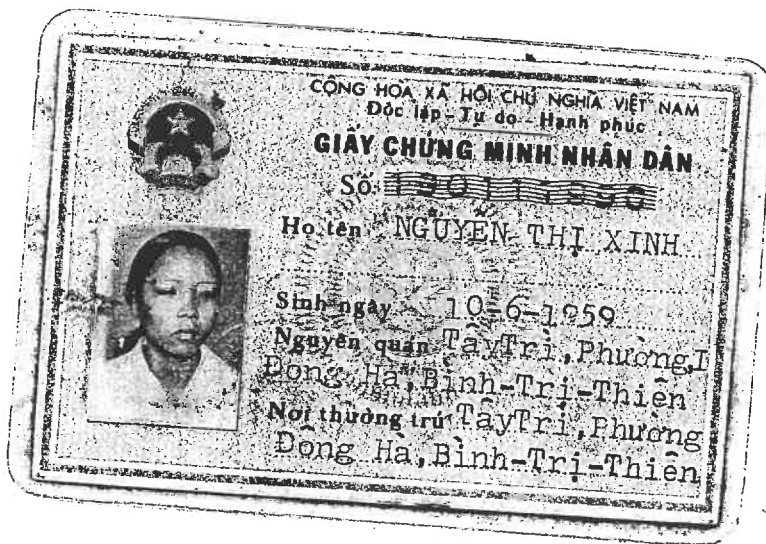 CỘNG HÒA XÃ HỘI CHỦ NGHĨA VIỆT NAM
Độc lập - Tự do - Hạnh phúc
GIẤY CHỨNG MINH NHÂN DÂN
Số
Họ tên NGUYỄN THỊ XINH
Sinh ngày 10-6-1959
Nguyên quán TâyTrì, Phường, I
Đông Hà, Bình-Trị-Thiên
Nơi thường trú TâyTrì, Phường
Đông Hà, Bình-Trị-Thiên